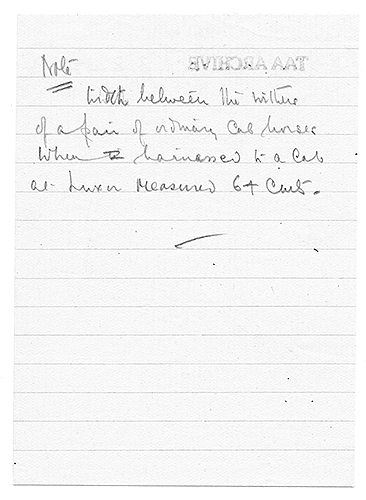 Note
TAA ARCHIVE
Width between the withers
of a pair of ordinary Cab horses
when harnassed to a Cab
at Luxor measured 64 Cent.